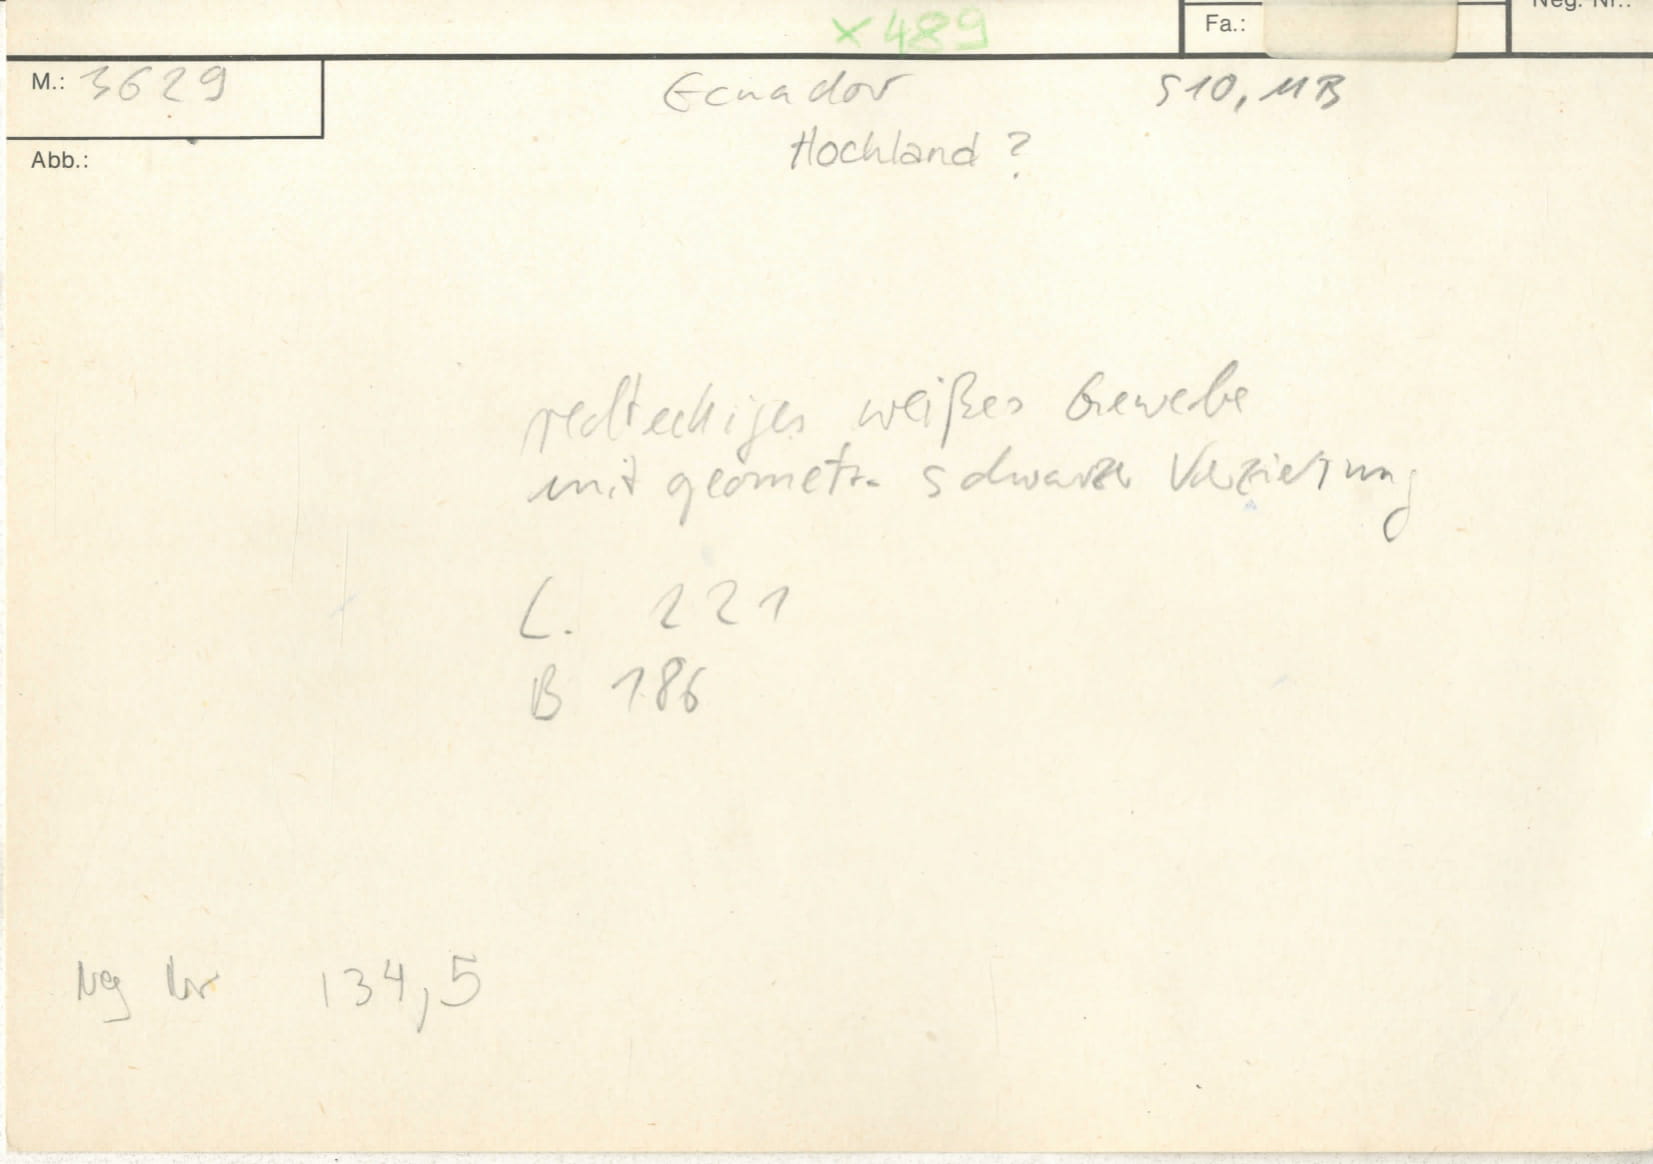 x 489
Fa.:
Neg. Nr.:
M.: 3629
Ecuador
S10, MB
Hochland ?
Abb.:
rechteckiges weißes Gewebe
mit geometr. schwarzer Verzierung
L. 221
B 186
Neg Nr 134,5